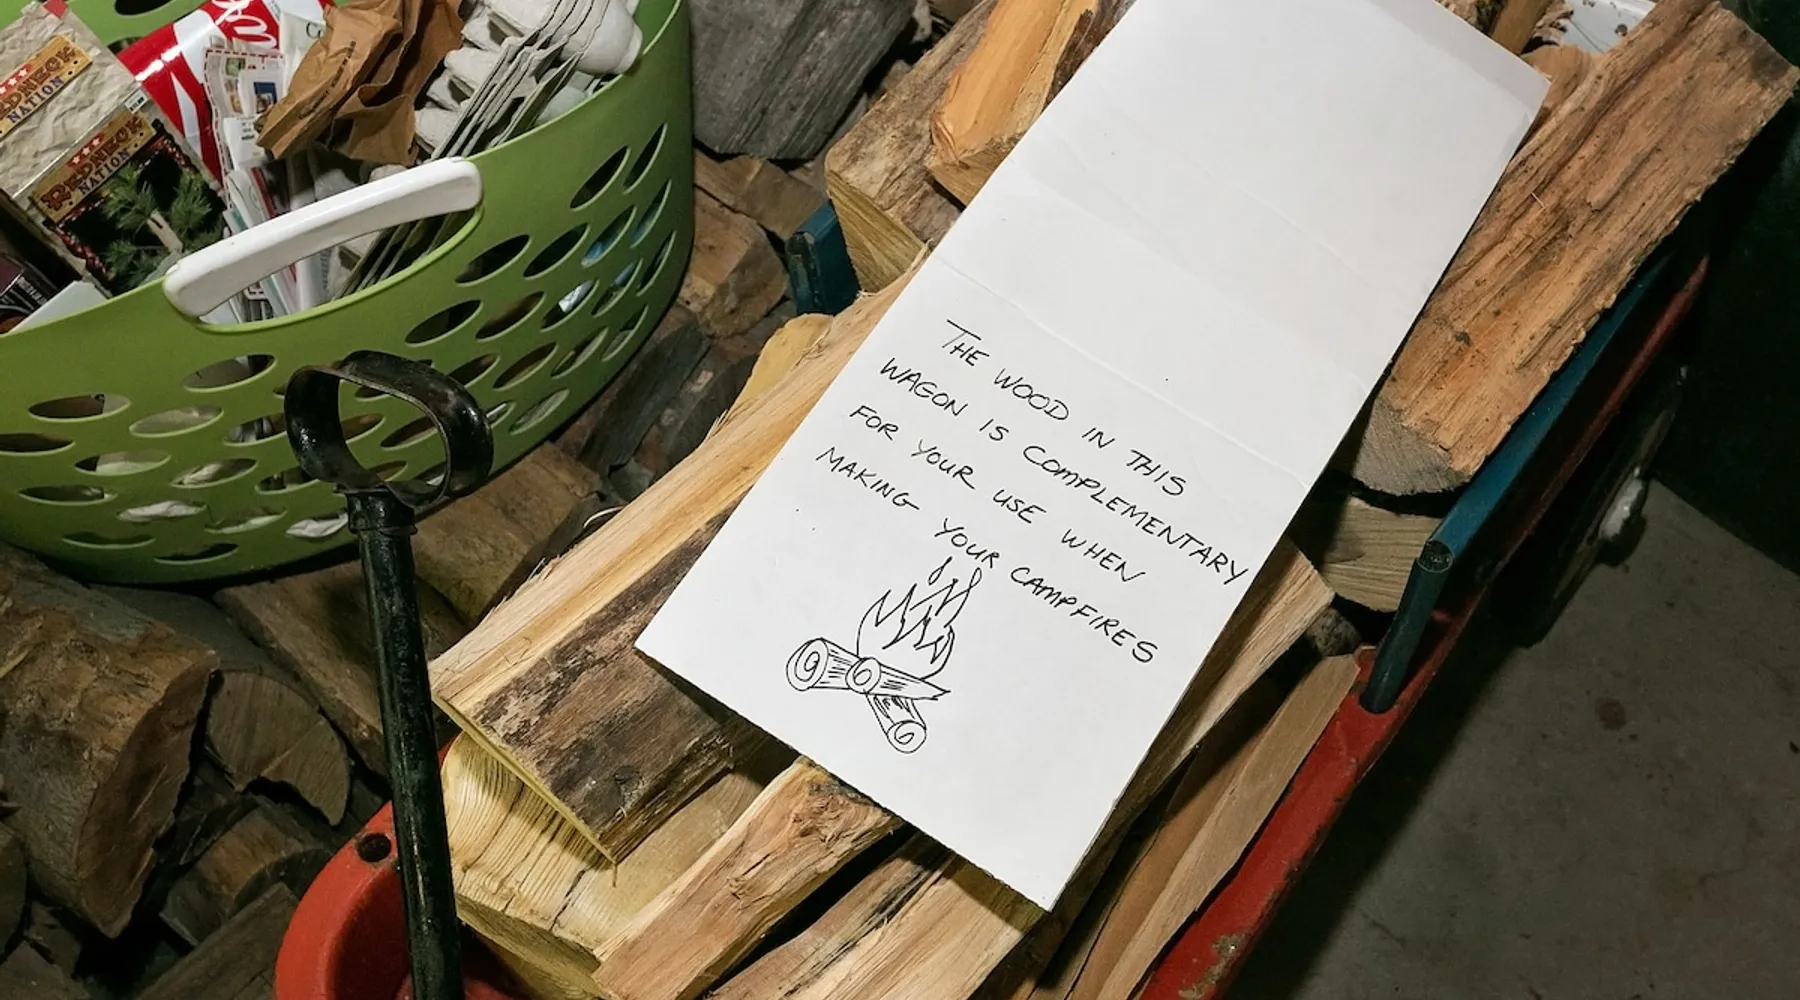 REDNECK
NATION
REDNECK
NATION
THE WOOD IN THIS
WAGON IS COMPLEMENTARY
FOR YOUR USE WHEN
MAKING YOUR CAMPFIRES